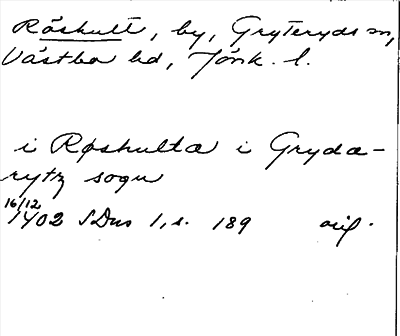 Röshult, by, Gryteryds sn,
Västbo hd, Jönk. l.
i Røshulta i Gryda-
rytz sogn
16/12
1402 SDns 1, s. 189 orig.